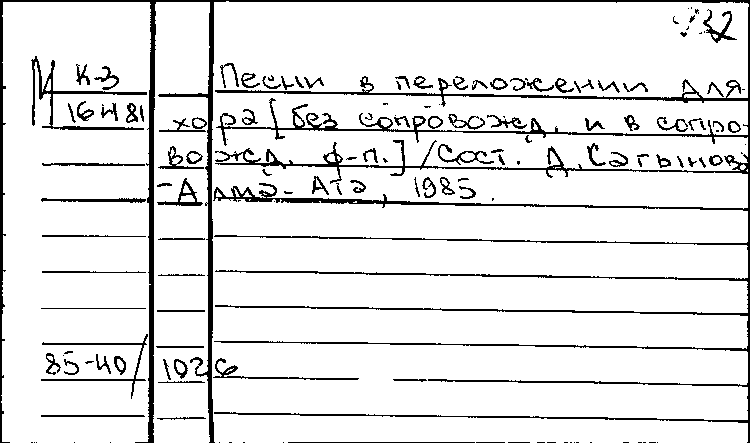 К-3
16481
Песни в переложении для
хора [без сопровожд. и в сопро-
вожд. ф-п.] / Сост. Д. Сагынова
-Алма-Ата, 1985.
85-40/1026